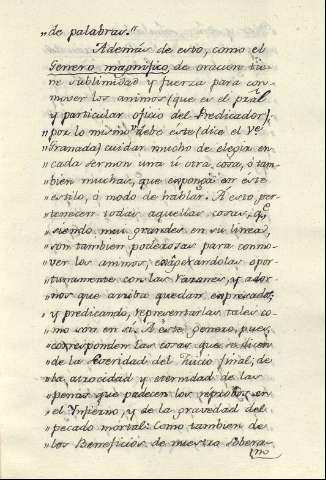 „de palabras."
Además de esto, como el
Genero magnifico de oracion tie
ne sublimidad y fuerza para con-
mover los animos (que es el pral
y particular oficio del Predicador),
„por lo mismo debe este (dice el Ve.
Granada) cuidar mucho de elegir en
„cada sermon una ú otra cosa, ó tam
„bien muchas, que esponga en éste
„estilo, ó modo de hablar. A esto, per-
„tenecen todas aquellas cosas, qe.
„siendo muy grandes en su linea,
„son tambien poderosas para conmo
„ver los animos, esforzandolas opor-
„tunamente con las razones, y ador
„nos que arriba quedan expresados,
„y predicando, representarlas tales co
„mo son en si. A este genero, pues,
„corresponden las cosas que se dicen
„de la severidad del Juicio final, de
„la atrocidad y eternidad de las
„penas que padecen los réprobos en
„el Infierno, y de la gravedad del
„pecado mortal: Como tambien de
„los Beneficios de nuestra sobera-
no